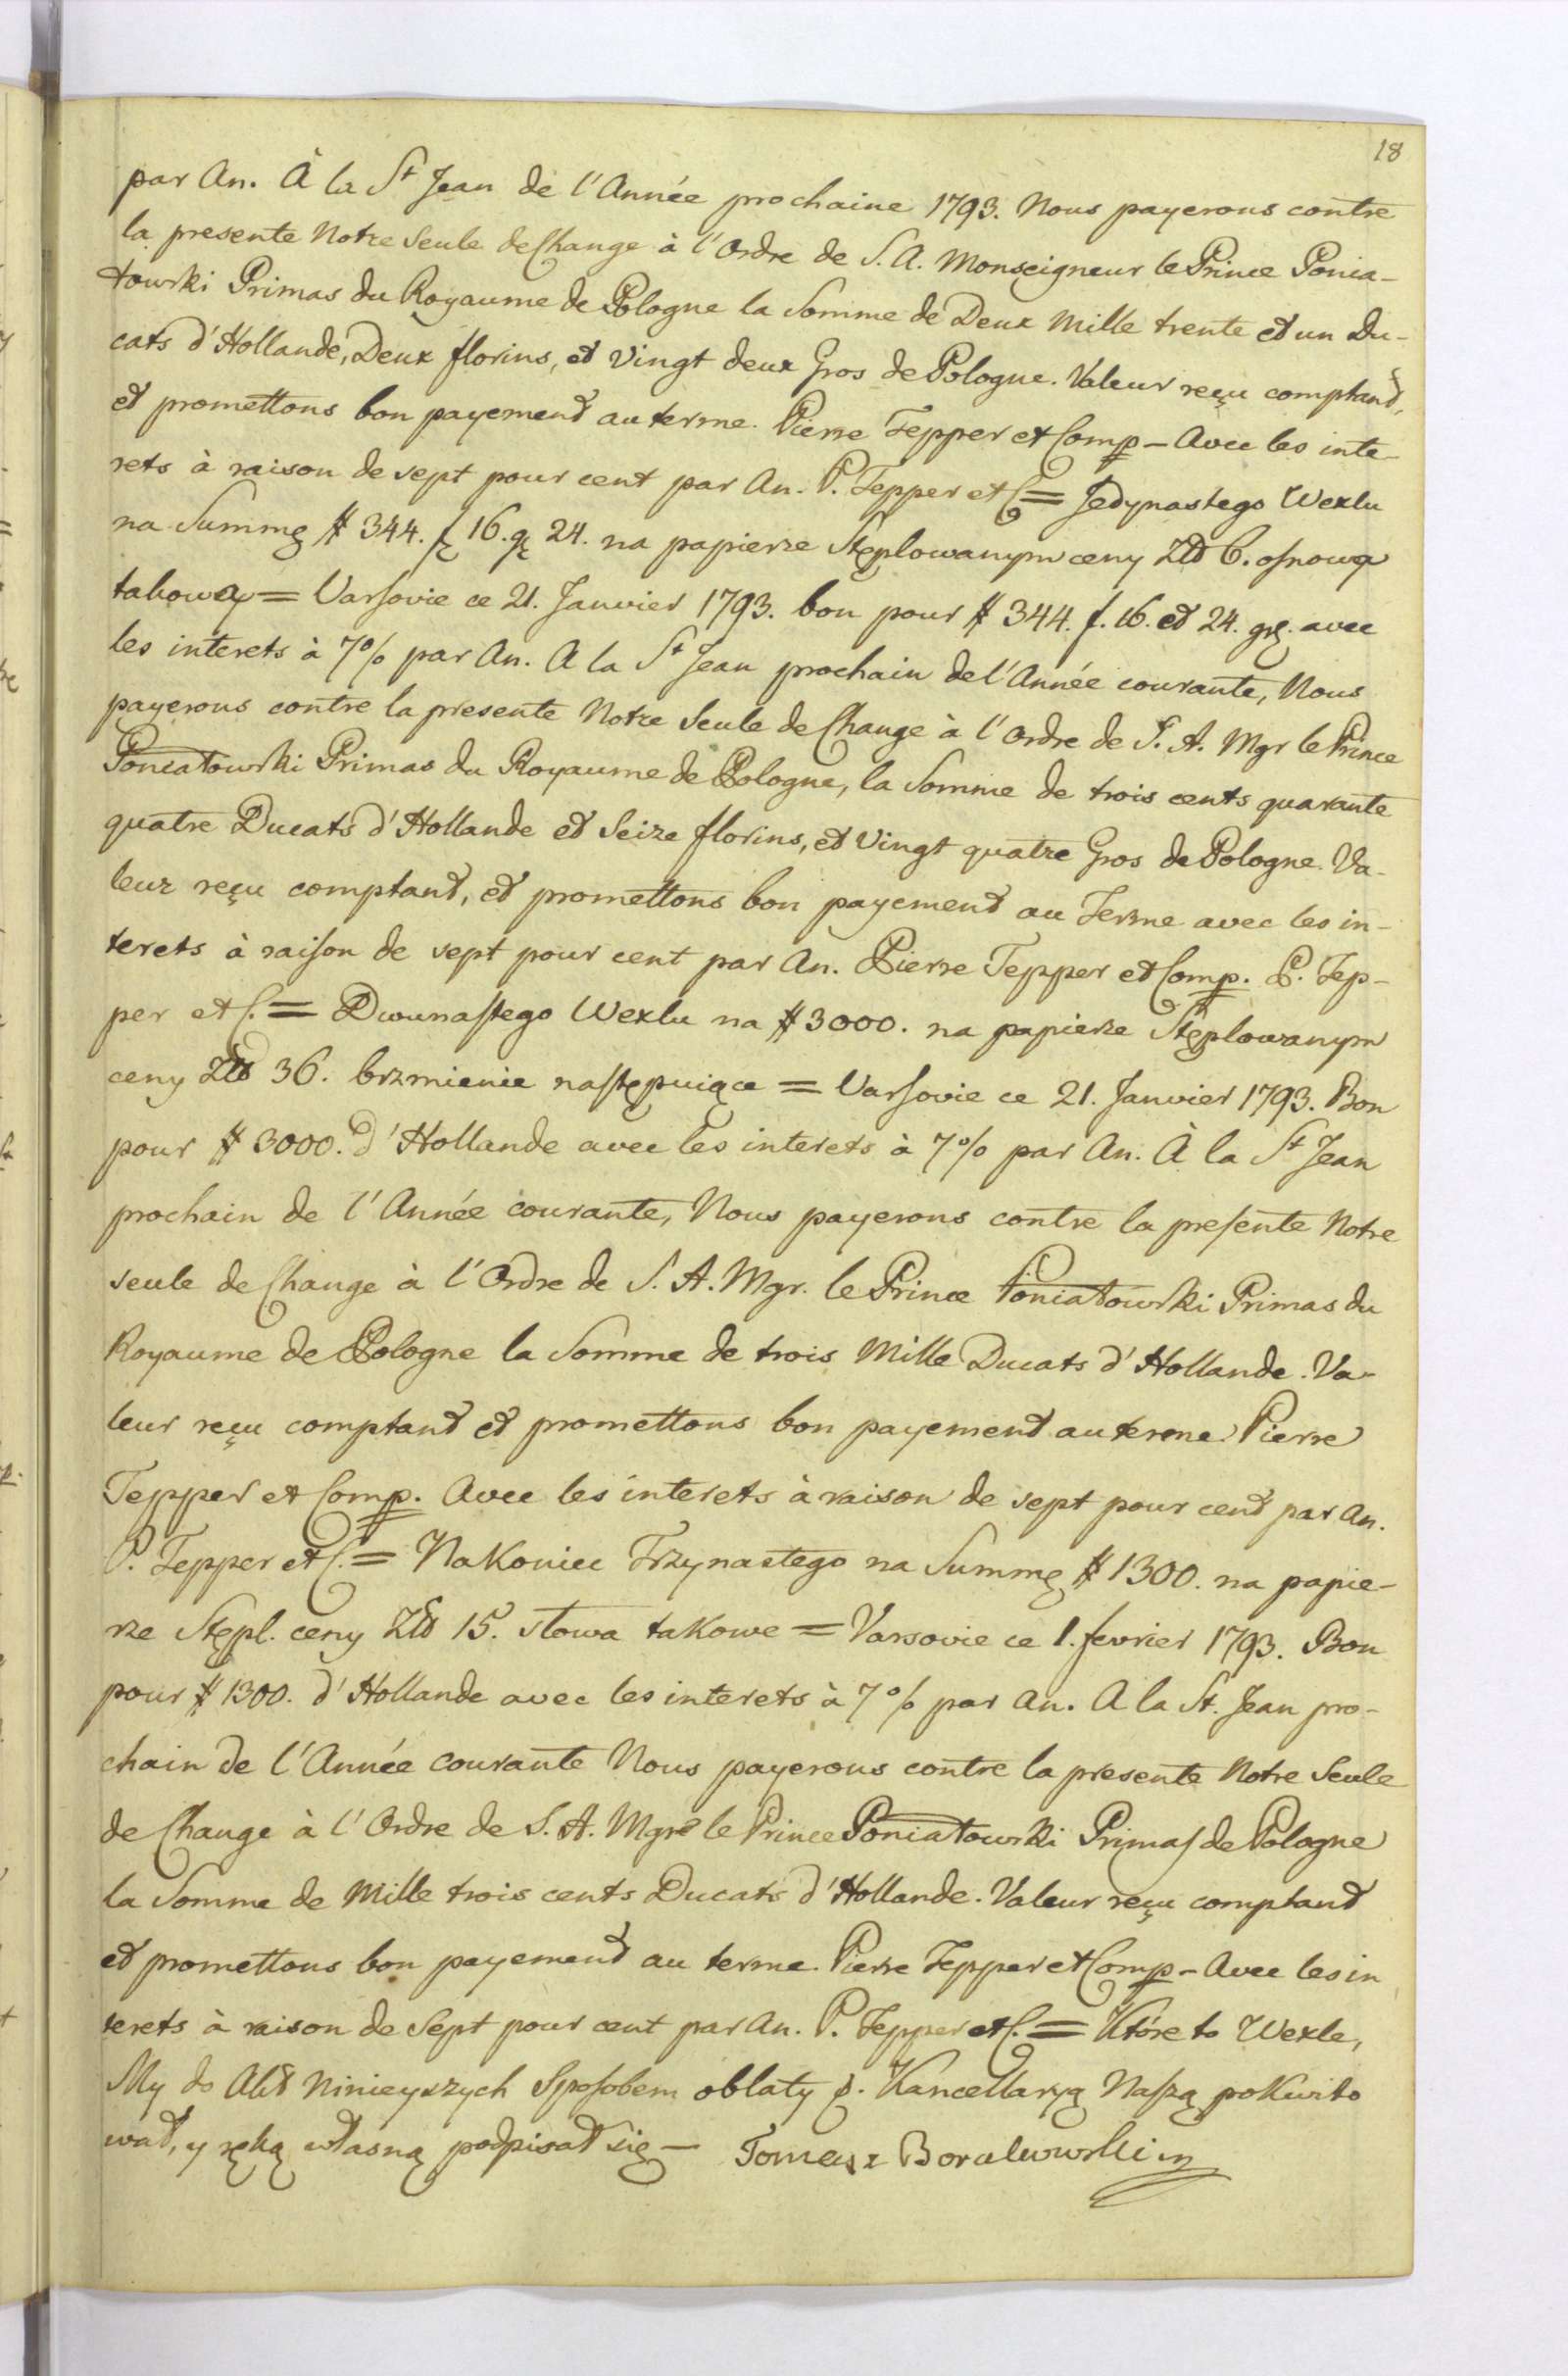 18
par An. À la St Jean de l'Année prochaine 1793. Nous payerons contre
la presente Notre Seule de Change à l'Ordre de S. A. Monseigneur le Prince Ponia-
towski Primas du Royaume de Pologne la Somme de Deux Mille trente et un Du-
cats d'Hollande, Deux florins, et Vingt deux Gros de Pologne. Valeur reçu comptant,
et promettons bon payement au terme. Pierre Tepper et Comp – Avec les inte-
rets à raison de sept pour cent par An. P. Tepper et C = Jedynastego Wexlu
na Summę # 344. f 16. g 24. na papierze Stęplowanym ceny Złt 6. osnowa
takowa = Varsovie ce 21. Janvier 1793. bon pour # 344. f. 16. et 24. grs. avec
les interets à 7% par An. A la St Jean prochain de l'Année courante, Nous
payerons contre la presente Notre Seule de Change à l'Ordre de S. A. Mgr le Prince
Poniatowski Primas du Royaume de Pologne, la Somme de trois cents quarante
quatre Ducats d'Hollande et Seize florins, et Vingt quatre Gros de Pologne. Va-
leur reçu comptant, et promettons bon payement au Terme avec les in-
terets à raison de sept pour cent par An. Pierre Tepper et Comp. P. Tep-
per et C. = Dwunastego Wexlu na # 3000. na papierze Stęplowanym
ceny Złt 36. brzmienie następuiące = Varsovie ce 21. Janvier 1793. Bon
pour # 3000. d'Hollande avec les interets à 7% par An. À la St Jean
prochain de l'Année courante, Nous payerons contre la presente Notre
seule de Change à l'Ordre de S. A. Mgr. le Prince Poniatowski Primas du
Royaume de Pologne la Somme de trois Mille Ducats d'Hollande. Va-
leur reçu comptant et promettons bon payement au terme Pierre
Tepper et Comp. Avec les interets à raison de sept pour cent par An.
P. Tepper et C. = Nakoniec Trzynastego na Summę # 1300. na papie-
rze Stępl. ceny Złt 15. słowa takowe = Varsovie ce 1. fevrier 1793. Bon
pour # 1300. d'Hollande avec les interets à 7% par An. A la St. Jean pro-
chain de l'Année courante Nous payerons contre la presente Notre Seule
de Change à l'Ordre de S. A. Mgre le Prince Poniatowski Primas de Pologne
la Somme de Mille trois cents Ducats d'Hollande. Valeur reçu comptant
et promettons bon payement au terme. Pierre Tepper et Comp – Avec les in
terets à raison de Sept pour cent par An. P. Tepper et C. = Które to Wexle,
My do Akt Ninieyszych Sposobem oblaty p. Kancellaryą Naszą pokwito
wał, y ręką własną podpisał się –